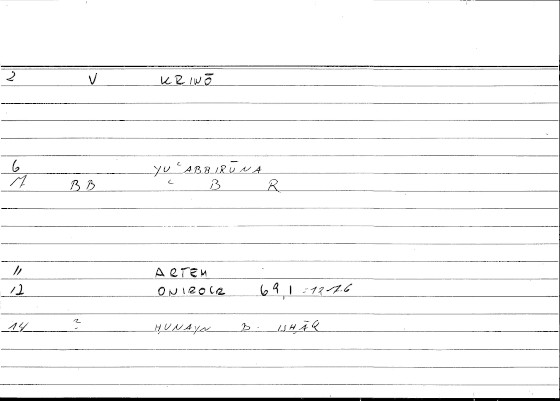 2 V KRINŌ
6 YUʿABBIRŪNA
M BB ʿ B R
11 ARTEM
12 ONIROCR 69,1 :12-16
14 ? ḤUNAYN B. ISḤĀQ